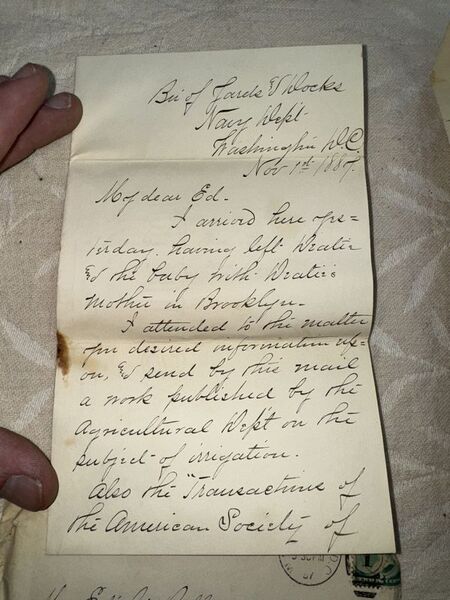 Bu of Yards & Docks
Navy Dept.
Washington D.C.
Nov 1st 1887.
My dear Ed.
I arrived here yes=
terday, having left
& the baby with
mother in Brooklyn.
I attended to the matter
you desired information up=
on, & send by this mail
a work published by the
Agricultural Dept on the
subject of irrigation.
Also the "Transactions of
the American Society of